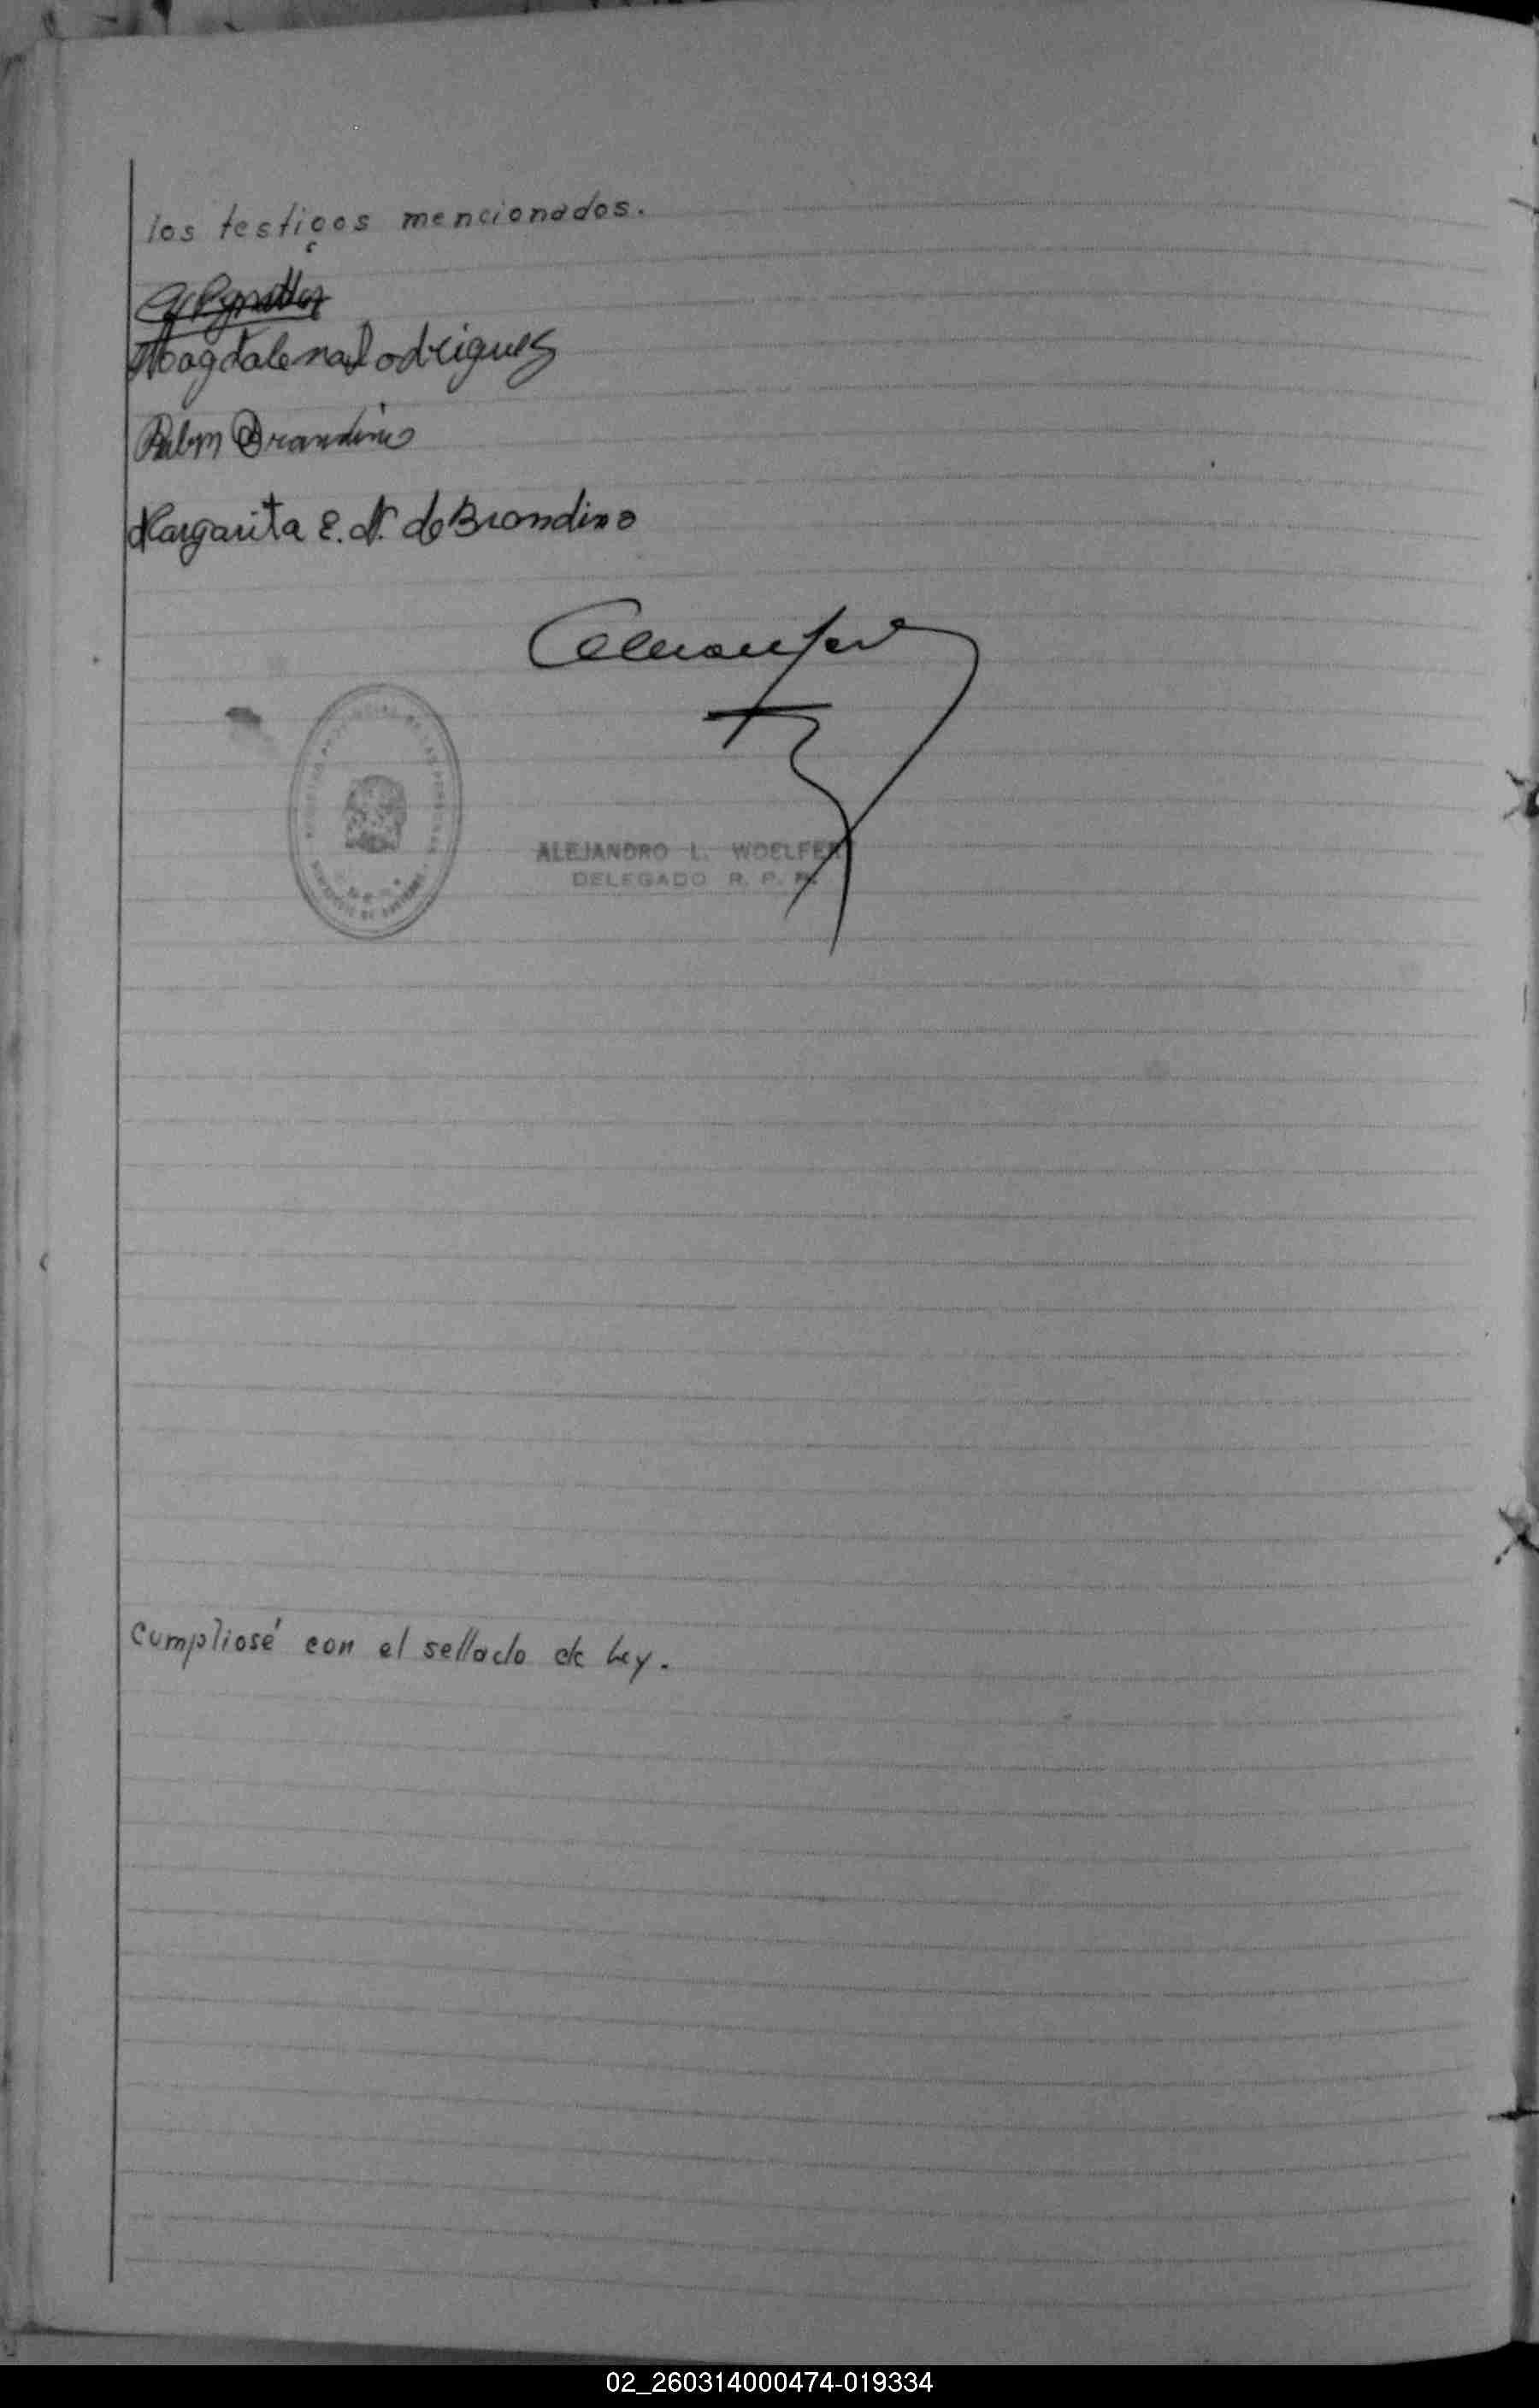 los testigos mencionados.
Magdalena Rodriguez
Brandino
Margarita E. N. de Brandino
ALEJANDRO L. WOELFER
DELEGADO R. P. P.
Cumpliosé con el sellado de Ley.
02_260314000474-019334